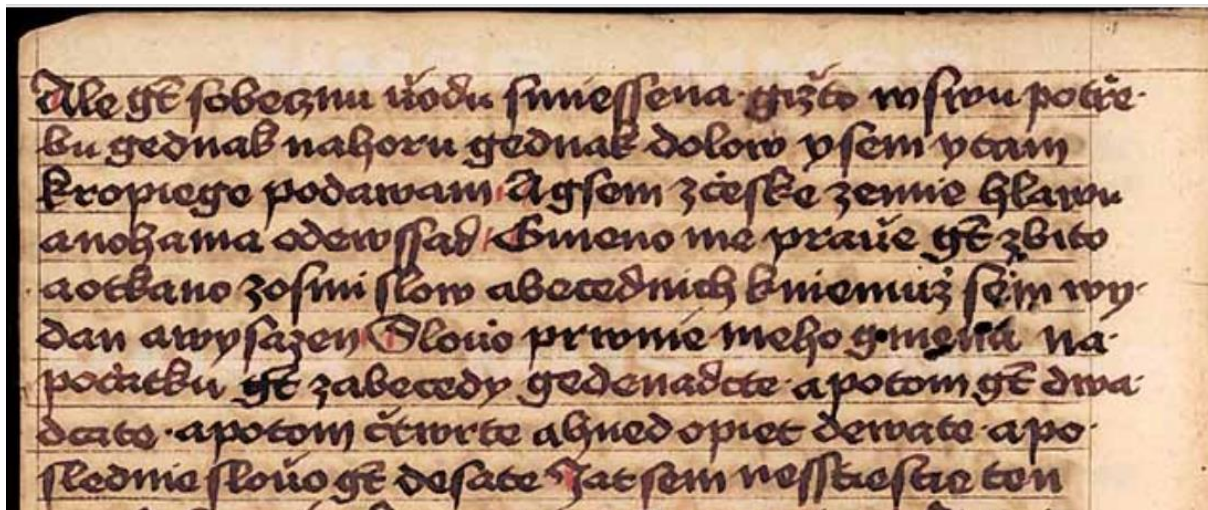 Ale gt̄ sobecznu uodu smiessena · gižto w swu potře·
bu gednak nahoru gednak dolow y sem y tam
kropiege podawam A gsem z česke zemie hlawu
a nohama odewssad Gmeno me prawe gt̄ zbito
a otkano z osmi slow abecednich k niemuž sem wy·
dan a wysazen Slowo prwnie meho gmena na
počatku gt̄ z abecedy gedenadcte · a potom gt̄ dwa·
dcate · a potom čtwrte a hned opiet dewate · a po·
slednie slowo gt̄ desate Jat sem nesstiestie ten